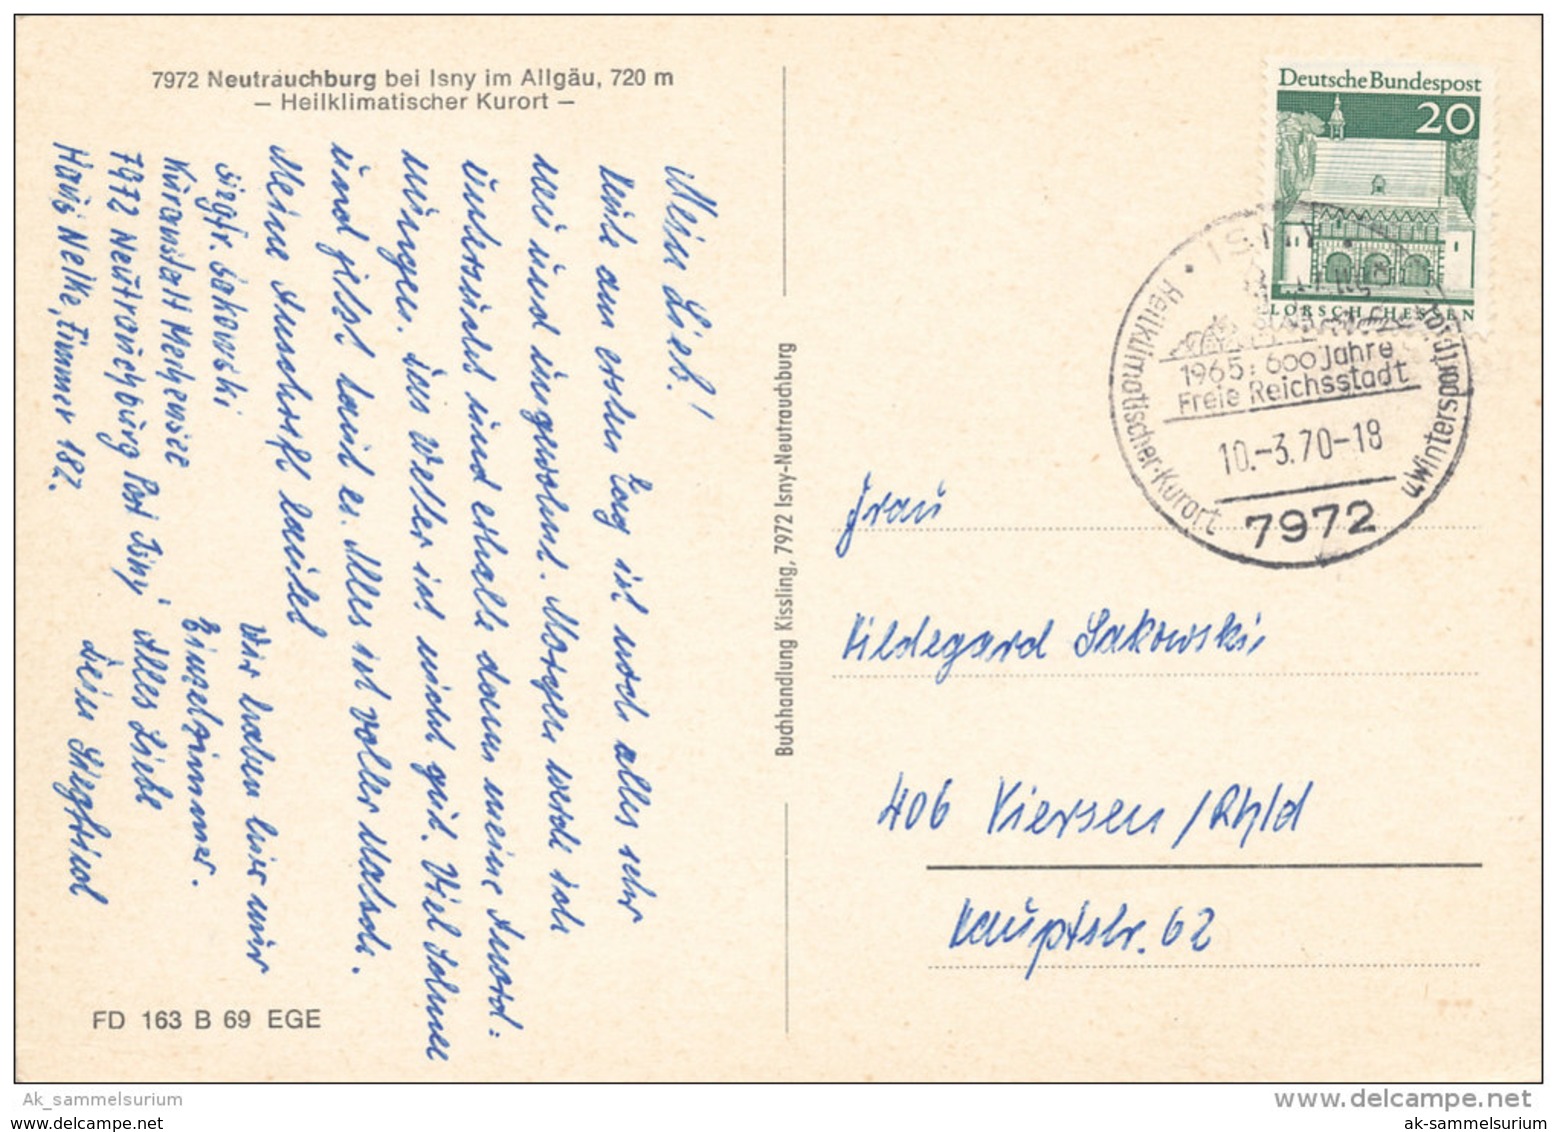 7972 Neutrauchburg bei Isny im Allgäu, 720 m
— Heilklimatischer Kurort —
Mein Lieb!
Heute am ersten Tag ist noch alles sehr
neu und ungewohnt. Morgen werde ich
untersucht und erhalte dann meine Anord=
nungen. Das Wetter ist nicht gut. Viel Schnee
und jetzt taut es. Alles ist voller Matsch.
Meine Anschrift lautet
Siegfr. Sakowski
Kuranstalt
7972 Neutrauchburg Post Isny
Haus Nelke, Zimmer 182.
Wir haben hier nur
Einzelzimmer.
Alles Liebe
Dein Siegfried
FD 163 B 69 EGE
Buchhandlung Kissling, 7972 Isny-Neutrauchburg
Deutsche Bundespost
20
LORSCH / HESSEN
• ISNY •
Heilklimatischer-Kurort
u.Wintersportpl
1965: 600 Jahre
Freie Reichsstadt
10.-3.70-18
7972
Frau
Hildegard Sakowski
406 Viersen /Rhld
Hauptstr. 62
Ak_sammelsurium
www.delcampe.net
www.delcampe.net
ak-sammelsurium